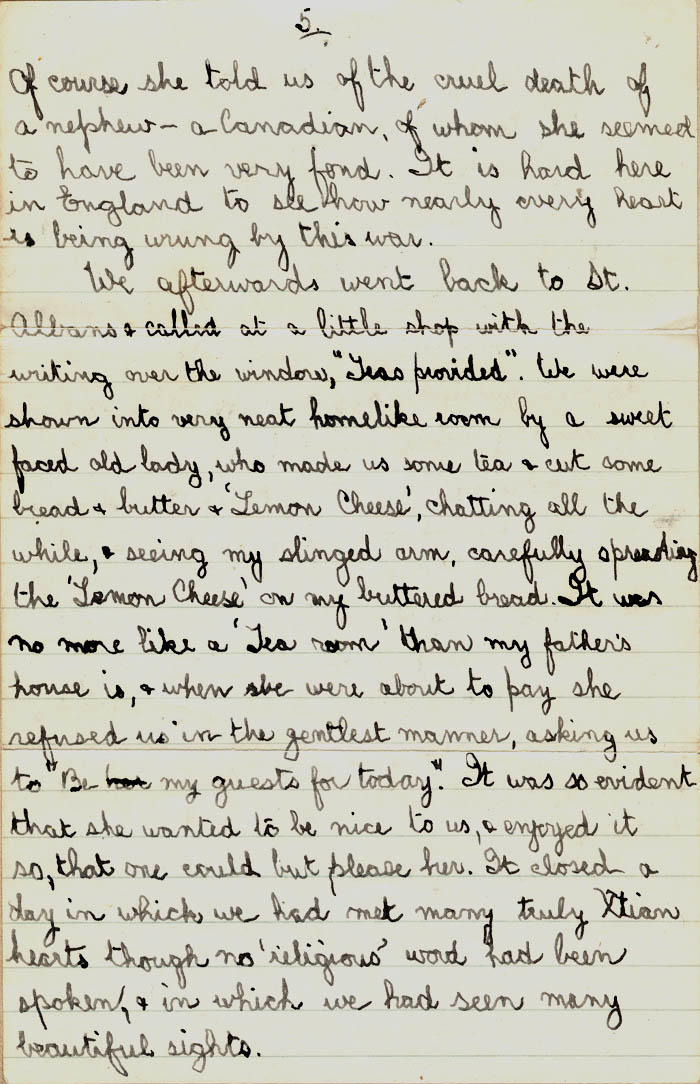 5.
Of course she told us of the cruel death of
a nephew - a Canadian, of whom she seemed
to have been very fond. It is hard here
in England to see how nearly every heart
is being wrung by this war.
We afterwards went back to St.
Albans & called at a little shop with the
writing over the window, "Teas provided". We were
shown into very neat homelike room by a sweet
faced old lady, who made us some tea & cut some
bread & butter & 'Lemon Cheese', chatting all the
while, & seeing my slinged arm, carefully spreading
the 'Lemon Cheese' on my buttered bread. It was
no more like a 'Tea room' than my father's
house is, & when we were about to pay she
refused us in the gentlest manner, asking us
to "Be my guests for today". It was so evident
that she wanted to be nice to us, & enjoyed it
so, that one could but please her. It closed a
day in which we had met many truly Xtian
hearts though no 'religious' word had been
spoken, & in which we had seen many
beautiful sights.